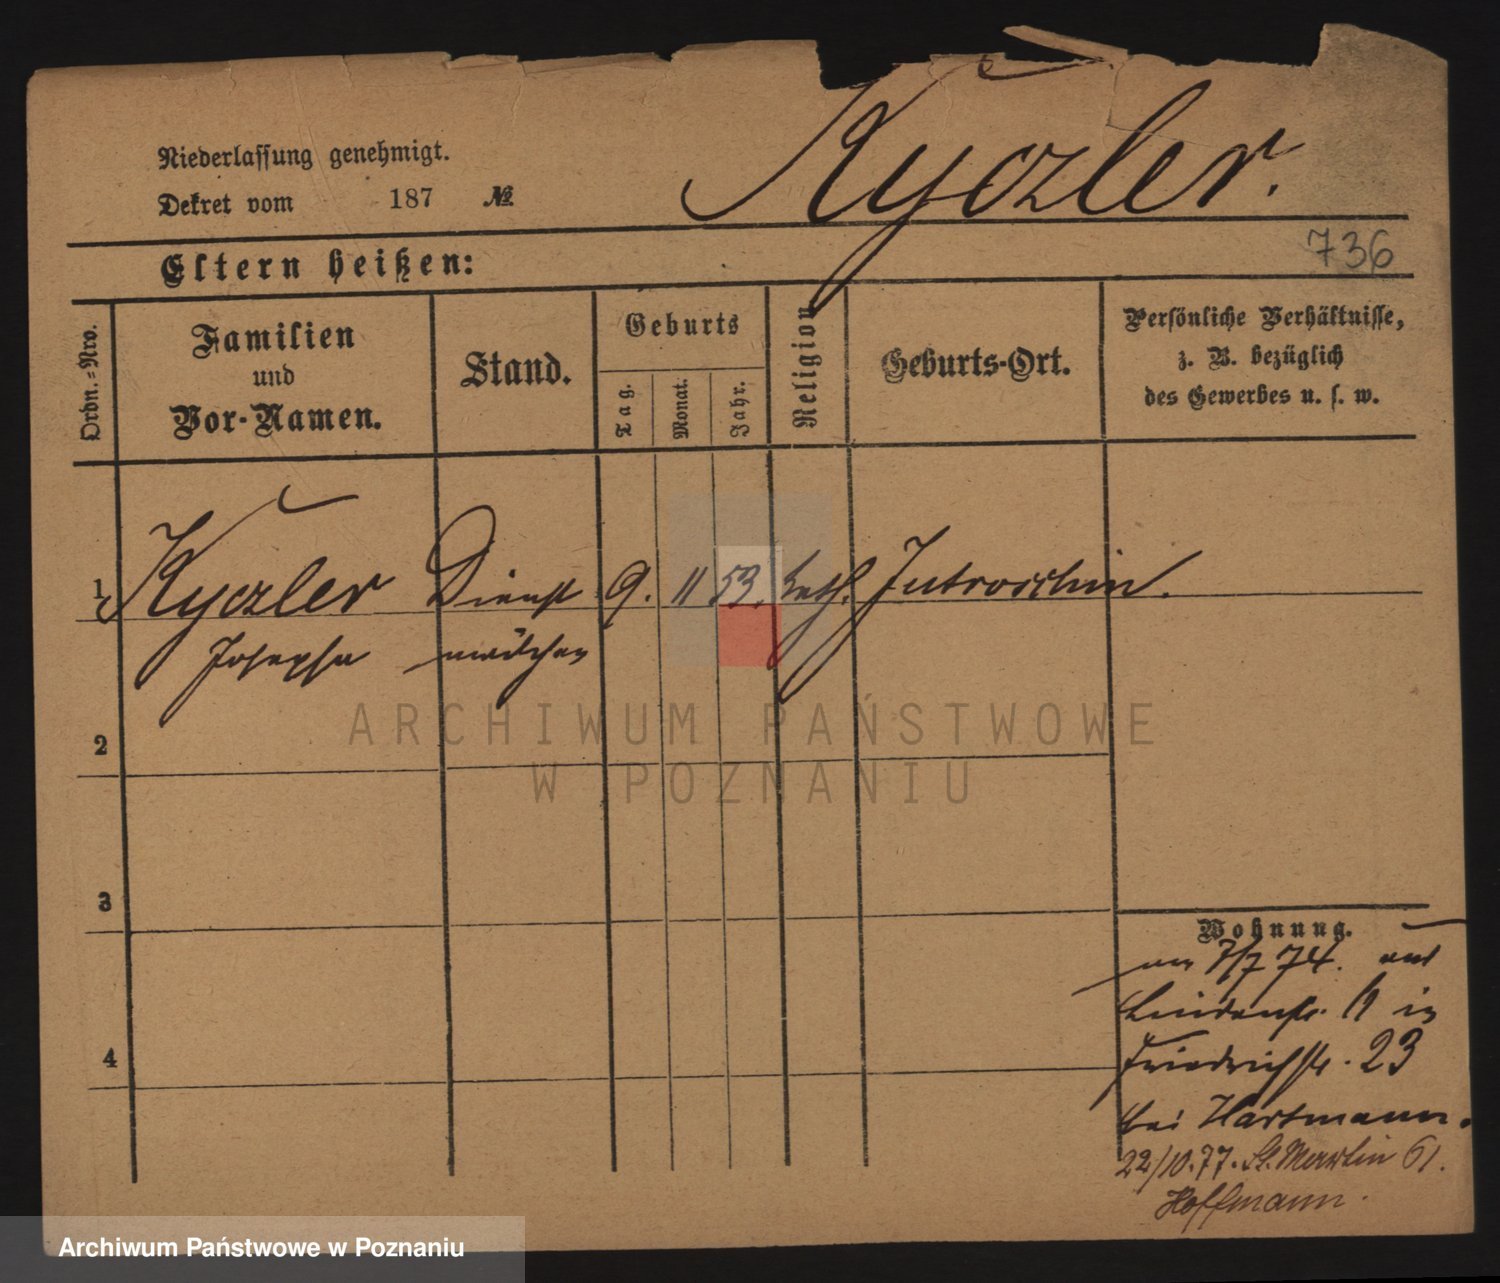 Kyczler.
Niederlassung genehmigt.
Dekret vom 187 №
736
Eltern heißen:
Ordn.-Nro.
Familien
und
Vor-Namen.
Stand.
Geburts
Tag.
Monat.
Jahr.
Religion
Geburts-Ort.
Persönliche Verhältnisse,
z. B. bezüglich
des Gewerbes u. s. w.
1 Kyczler Dienst 9. 11 53. kath. Jutroschin.
Josepha mädchen
ARCHIWUM PAŃSTWOWE
W POZNANIU
2
3
4
Wohnung.
7/7 74. aus
Lindenstr. in
Friedrichstr. 23
bei Hartmann.
22/10.77. St. Martin 61.
Hoffmann.
Archiwum Państwowe w Poznaniu